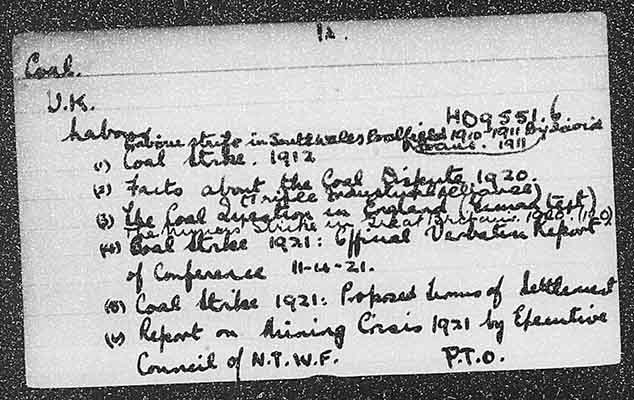 1a.
Coal.
U.K.
HD9551.6
Labour
Labour strife in South Wales Coalfield 1910-1911 by David
Evans. 1911
(1) Coal Strike. 1912
(2) Facts about the Coal Dispute 1920.
(Triple Industrial Alliance)
(3) The Coal Question in England (German text)
The Miners' Strike in Great Britain. 1920. (I.L.O)
(4) Coal Strike 1921: Official Verbatim Report
of Conference 11-4-21.
(5) Coal Strike 1921: Proposed Terms of Settlement
(6) Report on Mining Crisis 1921 by Executive
Council of N.T.W.F. P.T.O.